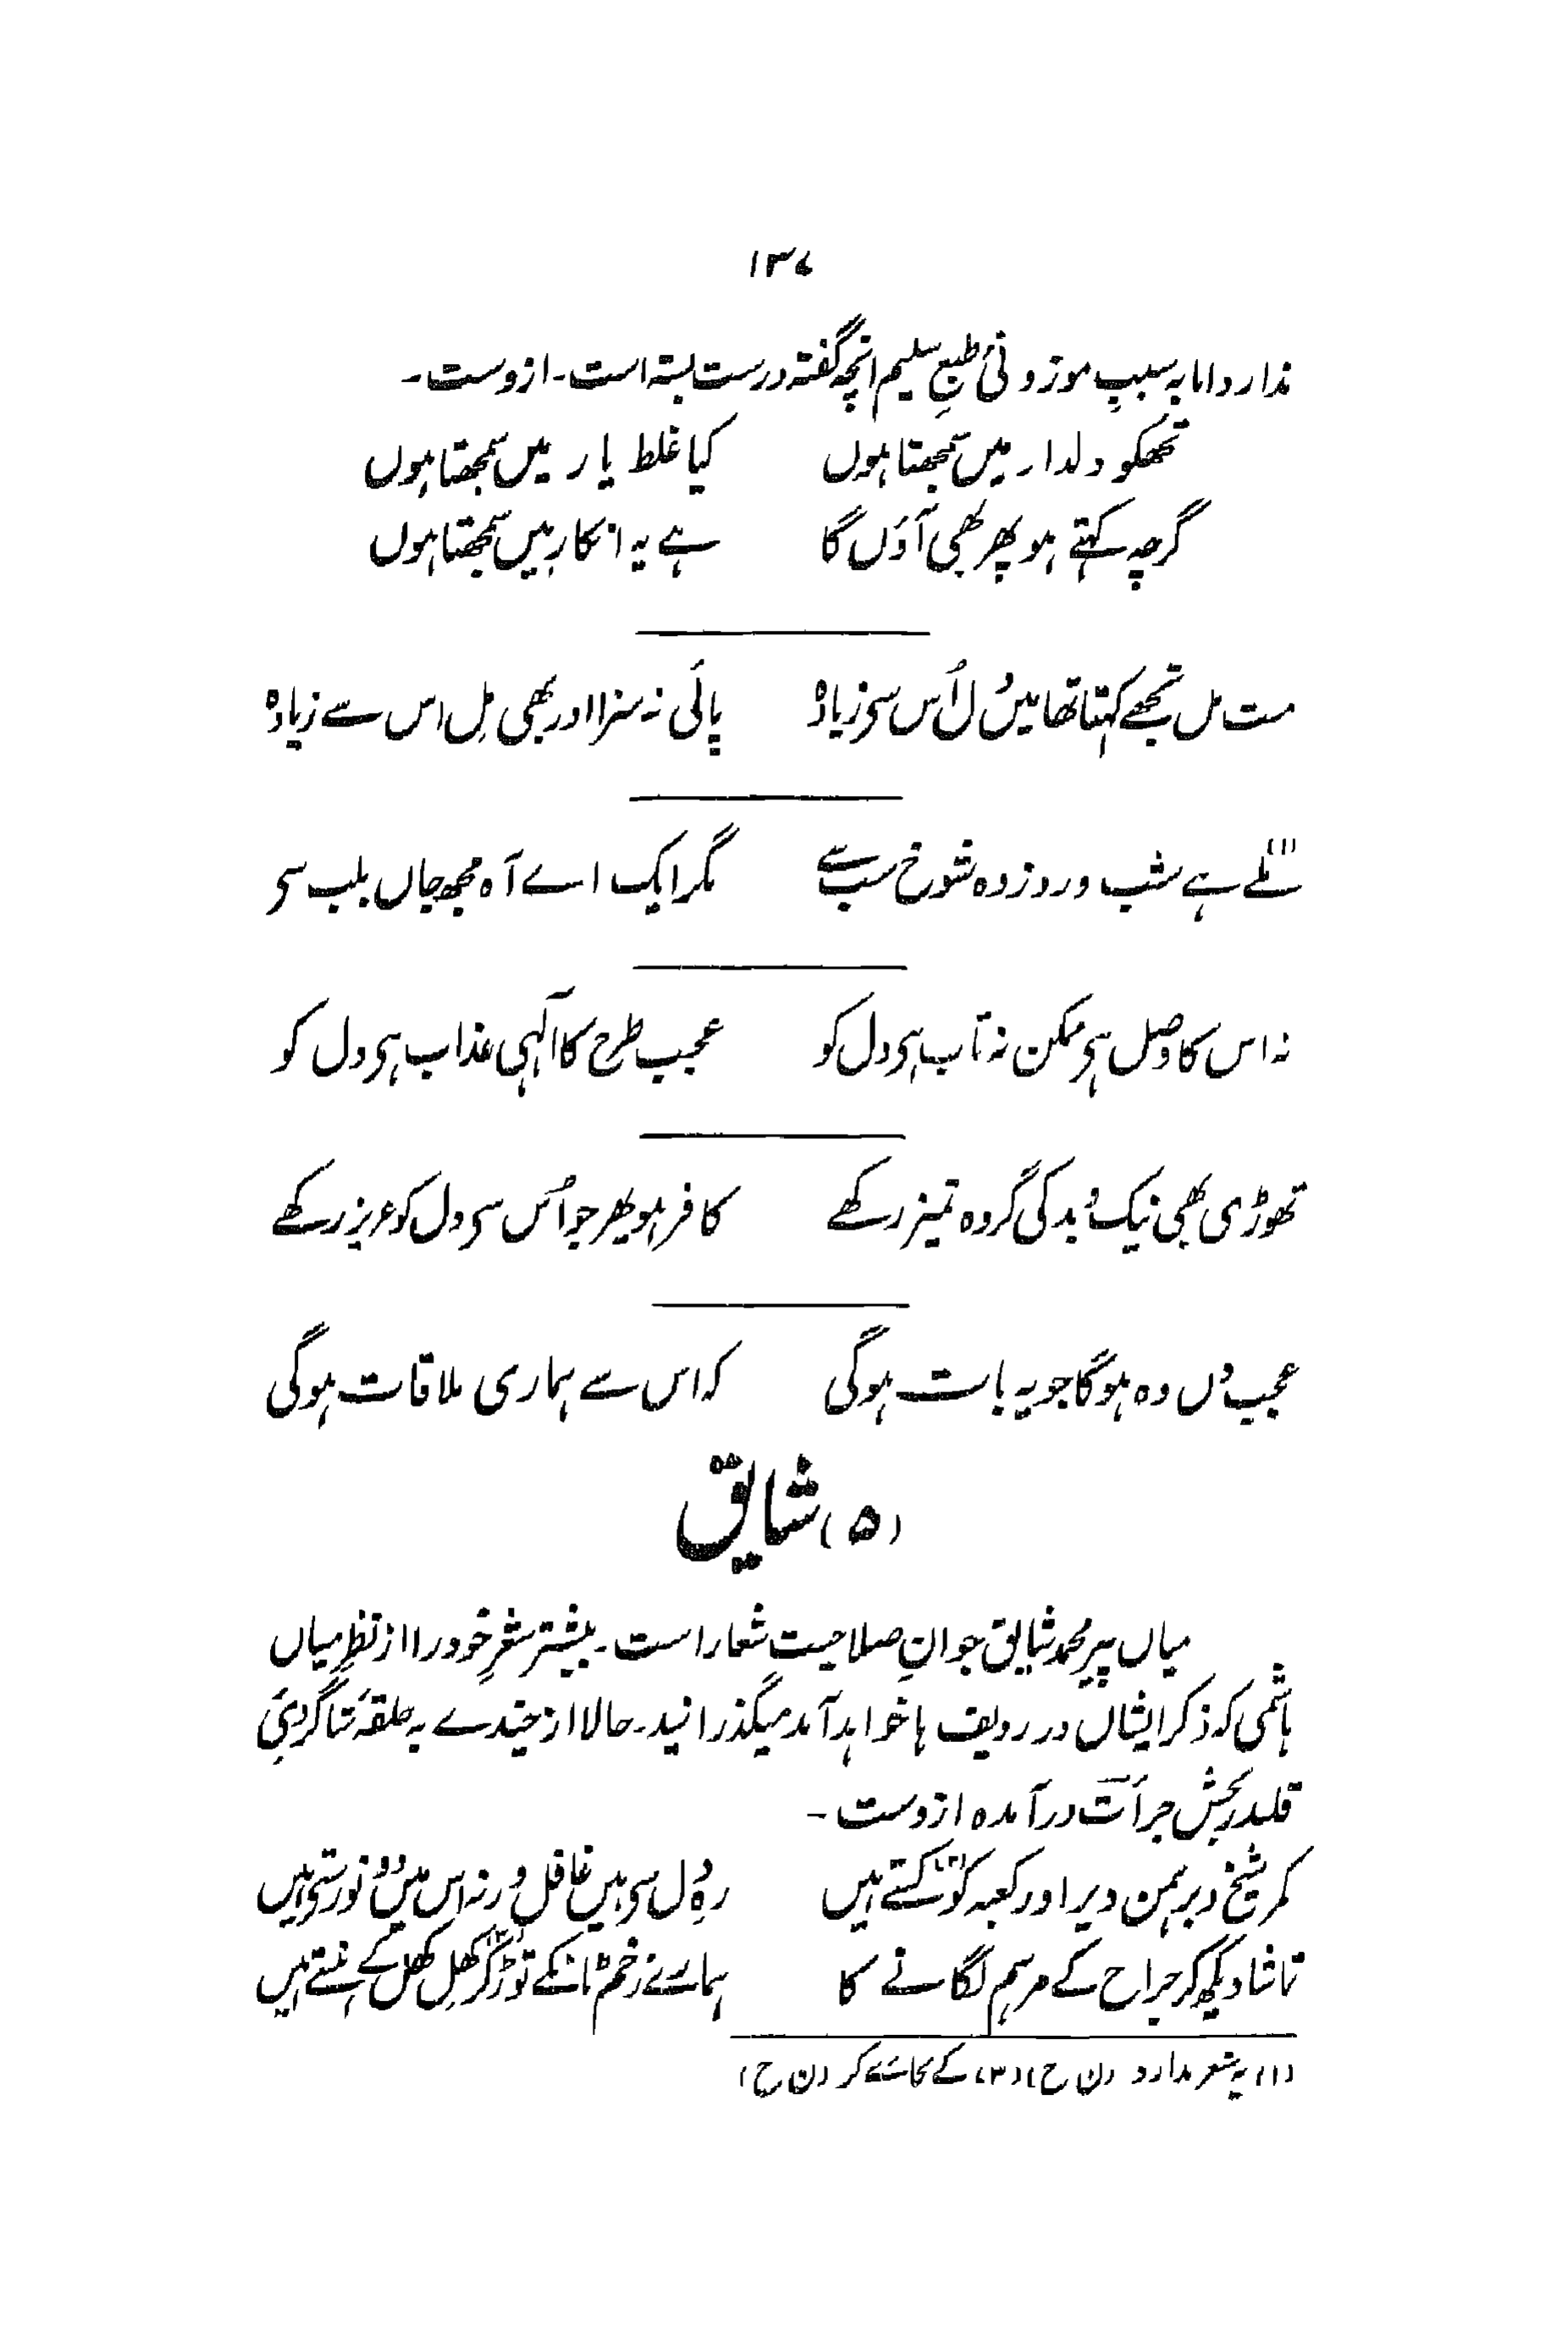 ۱۳۷
ندارد اما به سببِ موزونئ طبعِ سلیم انچہ گفتہ درست بستہ است۔ ازوست۔
تجھکو دلدار میں سمجھتا ہوں کیا غلط یار میں سمجھتا ہوں
گرچہ کہتے ہو پھر بھی آؤں گا ہے یہ انکار میں سمجھتا ہوں
مت مل تجھے کہتا تھا میں دل اُس سی زیادہ پائی نہ سزا اور بھی مِل اس سے زیادہ
ملے ہے شب و روز وہ شوخ سب سے (۱) مگر ایک اے آہ مجھ جاں بلب سی
نہ اس کا وصل ہی ممکن نہ تاب ہی دل کو عجیب طرح کا الٓہی عذاب ہی دل کو
تھوڑی بھی نیک و بد کی گر وہ تمیز رکھے کافر ہو پھر جو اُس سی دل کو عزیز رکھے
عجب دن وہ ہوگا جو یہ بات ہوگی کہ اس سے ہماری ملاقات ہوگی
(۵) شایق
میاں پیر محمد شایق جوانِ صلاحیت شعار است۔ بیشتر شعرِ خود را از نظرِ میاں
ہاشمی کہ ذکر ایشاں در ردیف ہا خواہد آمد میگذرانید۔ حالا از چندے بہ حلقۂ شاگردیِ
قلندر بخش جرأت درآمدہ ازوست۔
کمر شیخ و برہمن دیر اور کعبہ کو کستے ہیں رہِ دل سی ہیں غافل ورنہ اس میں دو نو رستی ہیں
تماشا دیکھ کر جراح کے مرہم لگانے کا ہمارے زخم ٹانکے توڑ کر کھل کھل کے ہنستے ہیں
(۱) یہ شعر ندارد (ن ح) (۳) کے بجائے کر (ن ح)